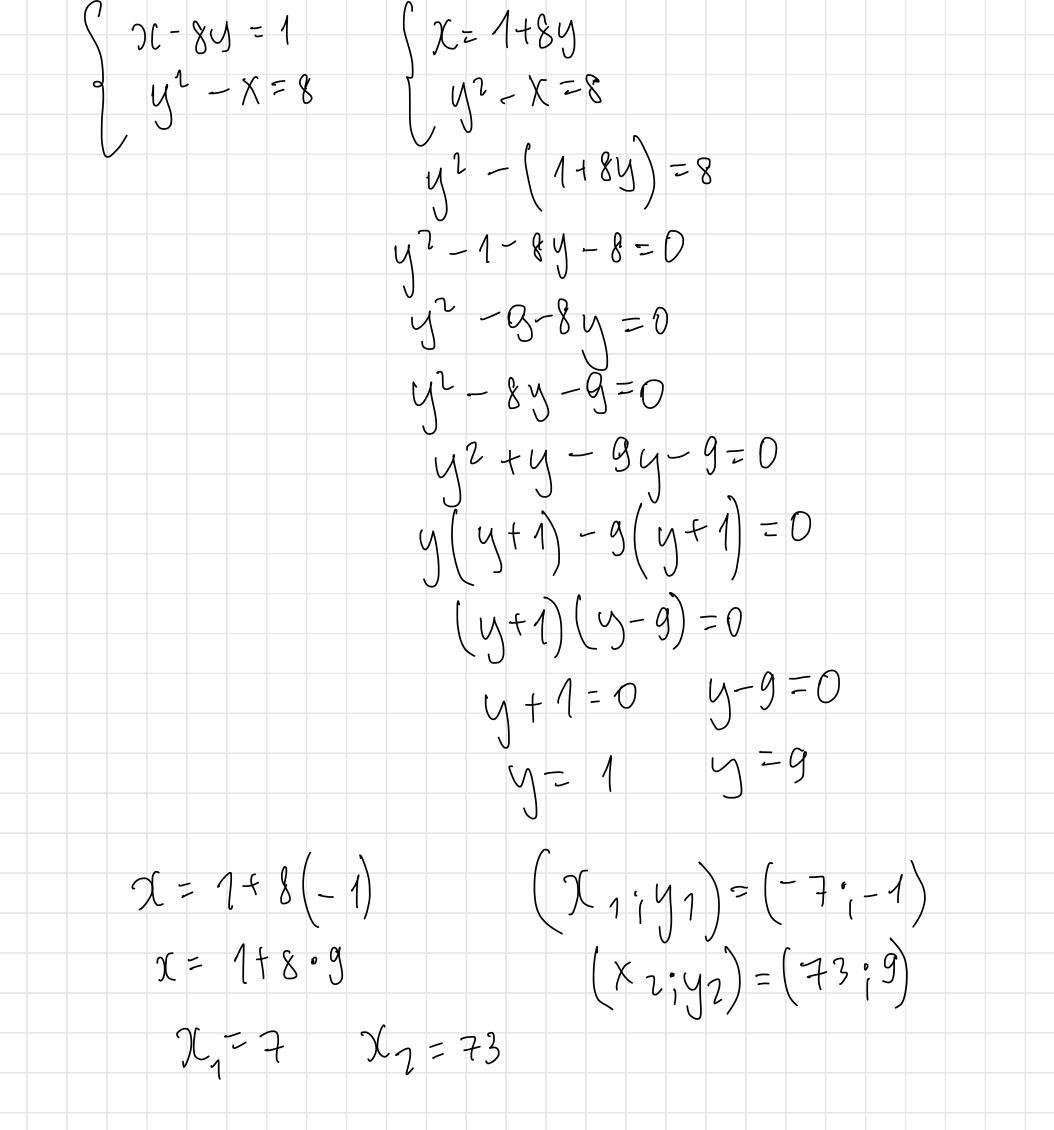 x - 8y = 1
y² - x = 8
x = 1 + 8y
y² - x = 8
y² - (1 + 8y) = 8
y² - 1 - 8y - 8 = 0
y² - 9 - 8y = 0
y² - 8y - 9 = 0
y² + y - 9y - 9 = 0
y(y + 1) - 9(y + 1) = 0
(y + 1)(y - 9) = 0
y + 1 = 0 y - 9 = 0
y = 1 y = 9
x = 1 + 8(-1)
x = 1 + 8 · 9
x₁ = 7 x₂ = 73
(x₁; y₁) = (-7; -1)
(x₂; y₂) = (73; 9)